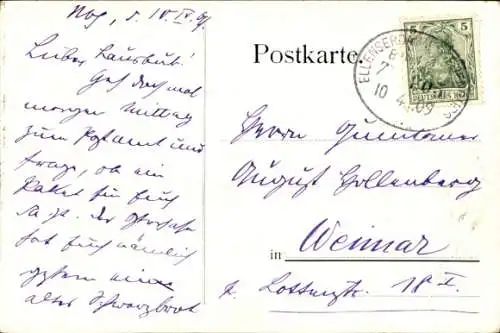 Lieber Lausbub!
Geh doch mal
morgen Mittag
zum Postamt und
frage, ob ein
Paket für Euch
da ist. Der
hat Euch nämlich
gestern ein
altes Schwarzbrot
Postkarte.
5
ELLENSER
10 4 09
Herrn
August Hollenberg
in Weimar
Lottenstr. 18 I.